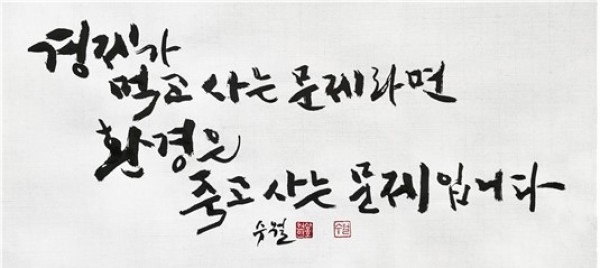 경제가
먹고 사는 문제라면
환경은
죽고 사는 문제입니다
수월